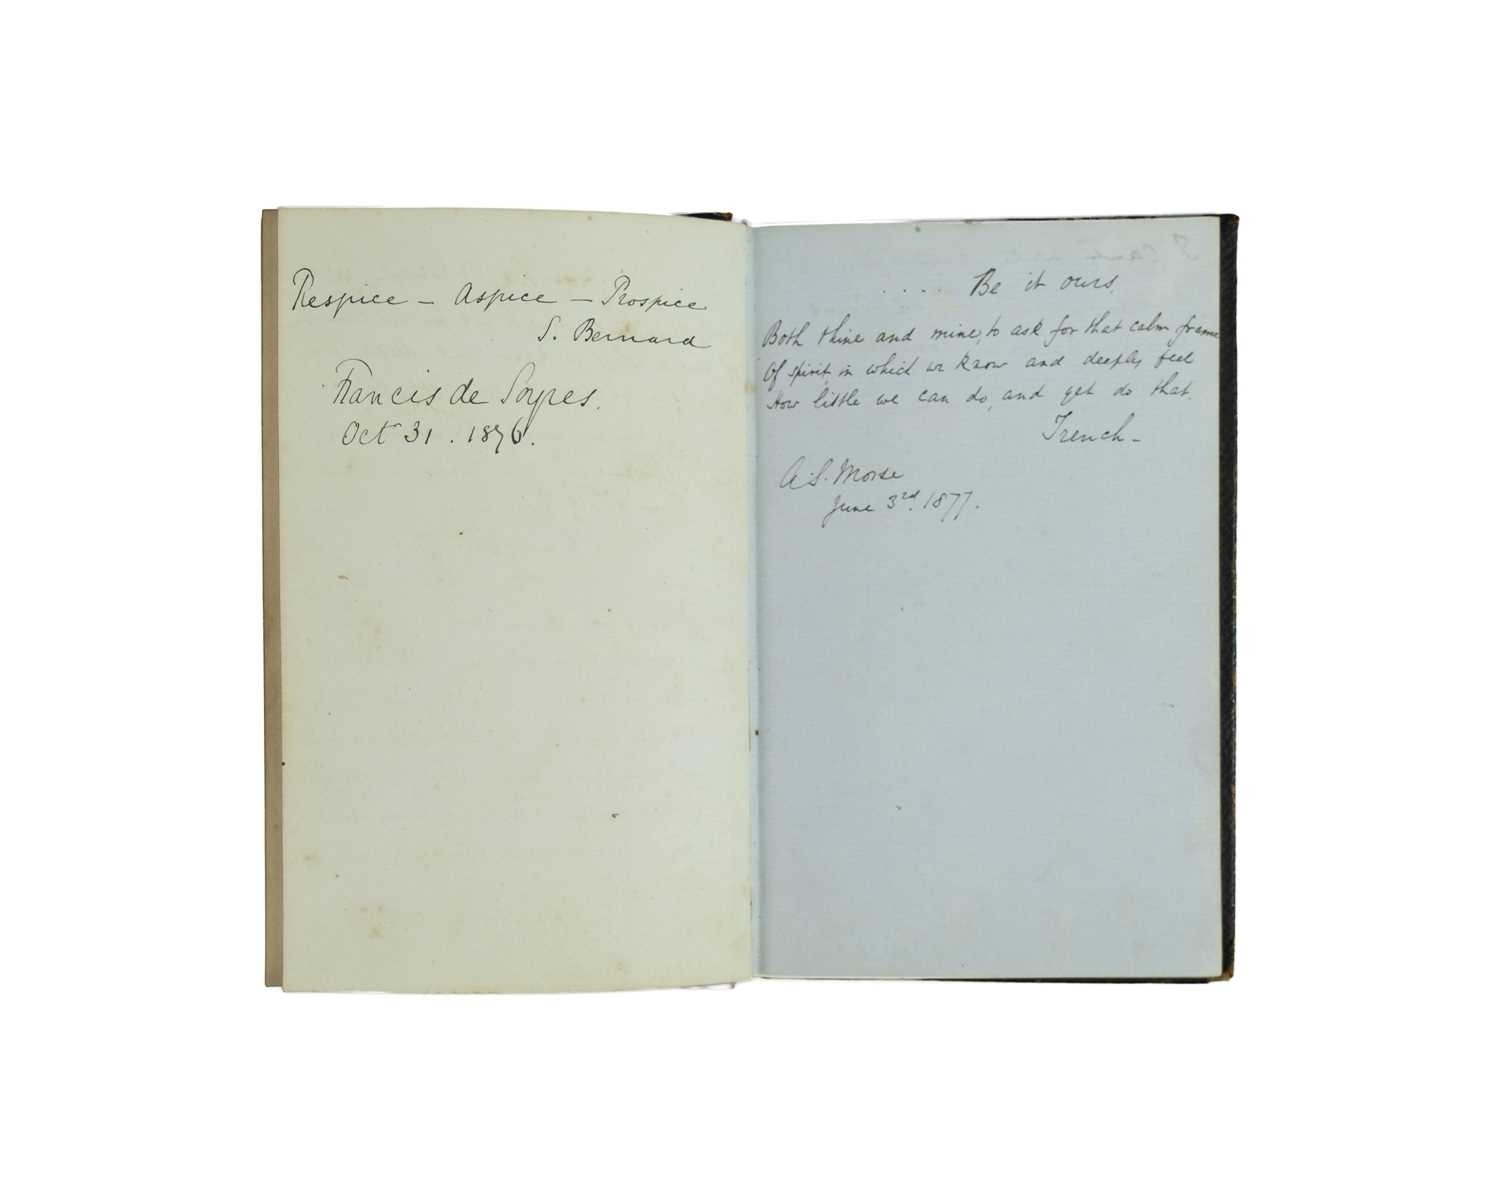 Respice – Aspice – Prospice
S. Bernard
Francis de Soyres.
Oct 31. 1876.
.... Be it ours,
Both thine and mine, to ask for that calm frame
Of spirit, in which we know and deeply feel
How little we can do, and yet do that.
Trench –
A. S. Morse
June 3rd. 1877.